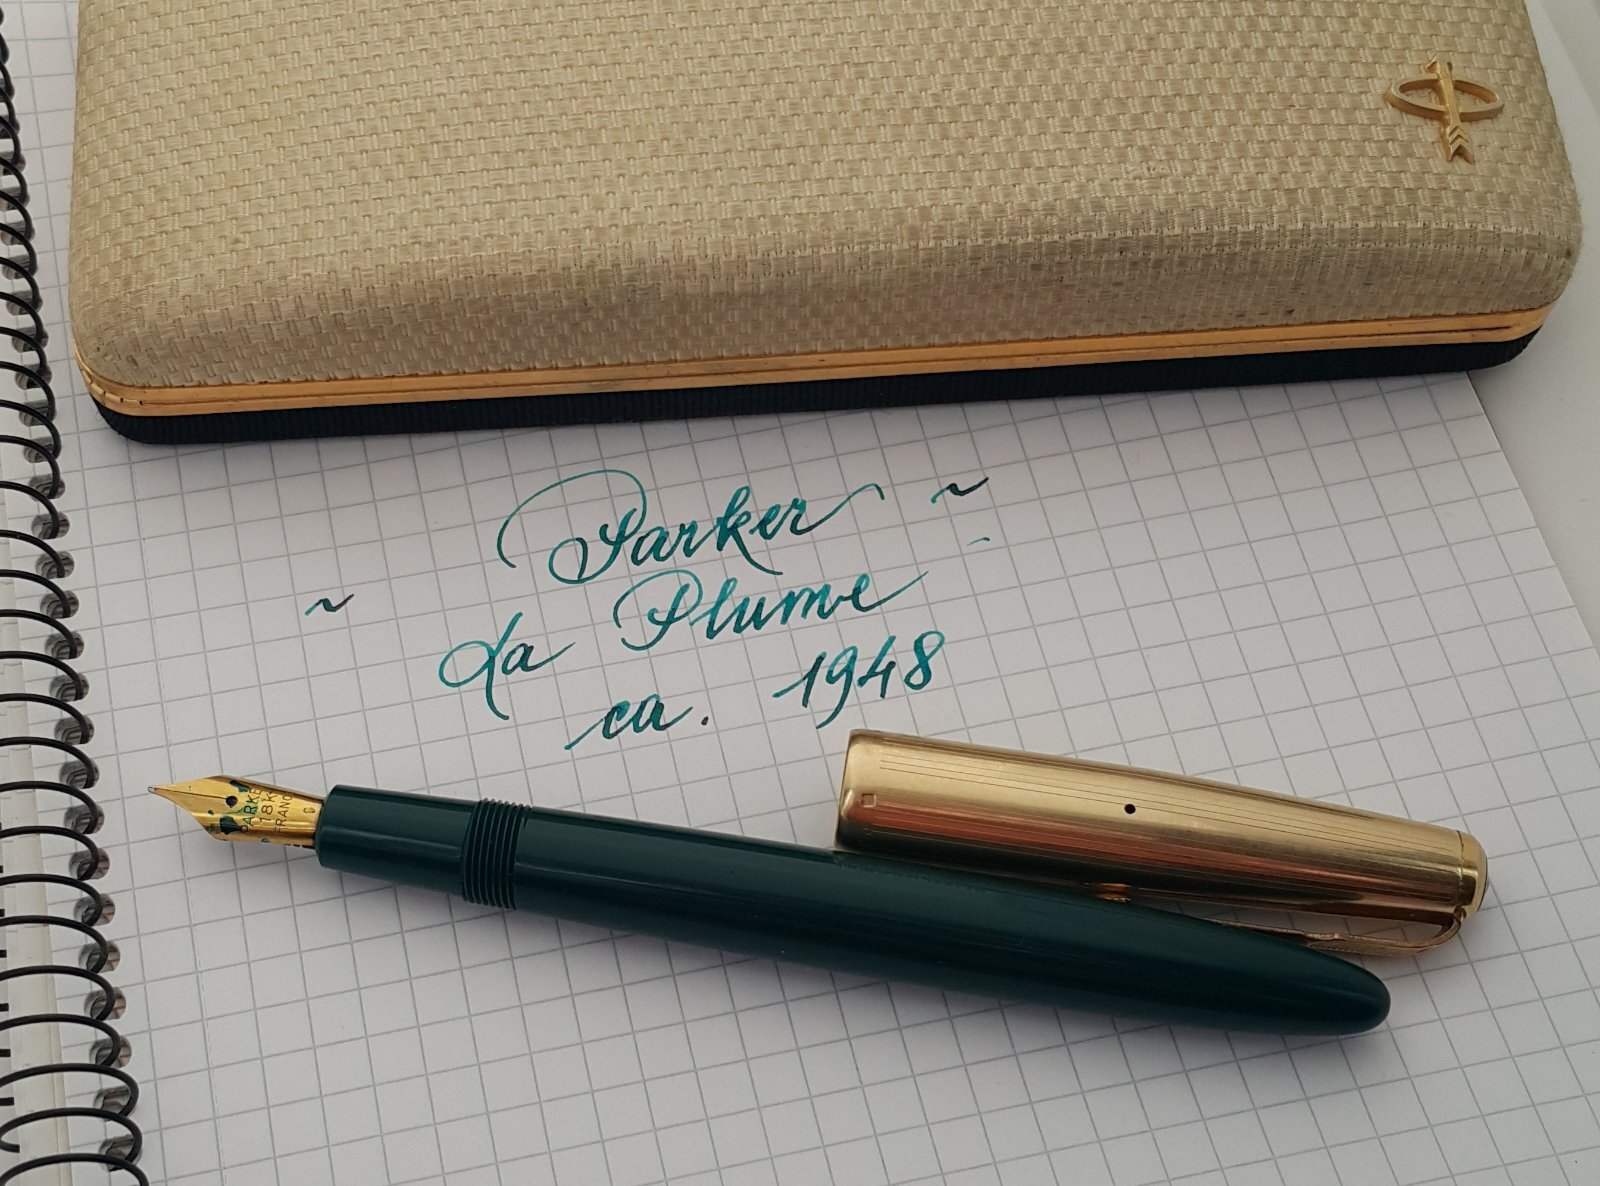 ~ Parker ~
~ La Plume -
ca. 1948
PARKER
18K
FRANCE